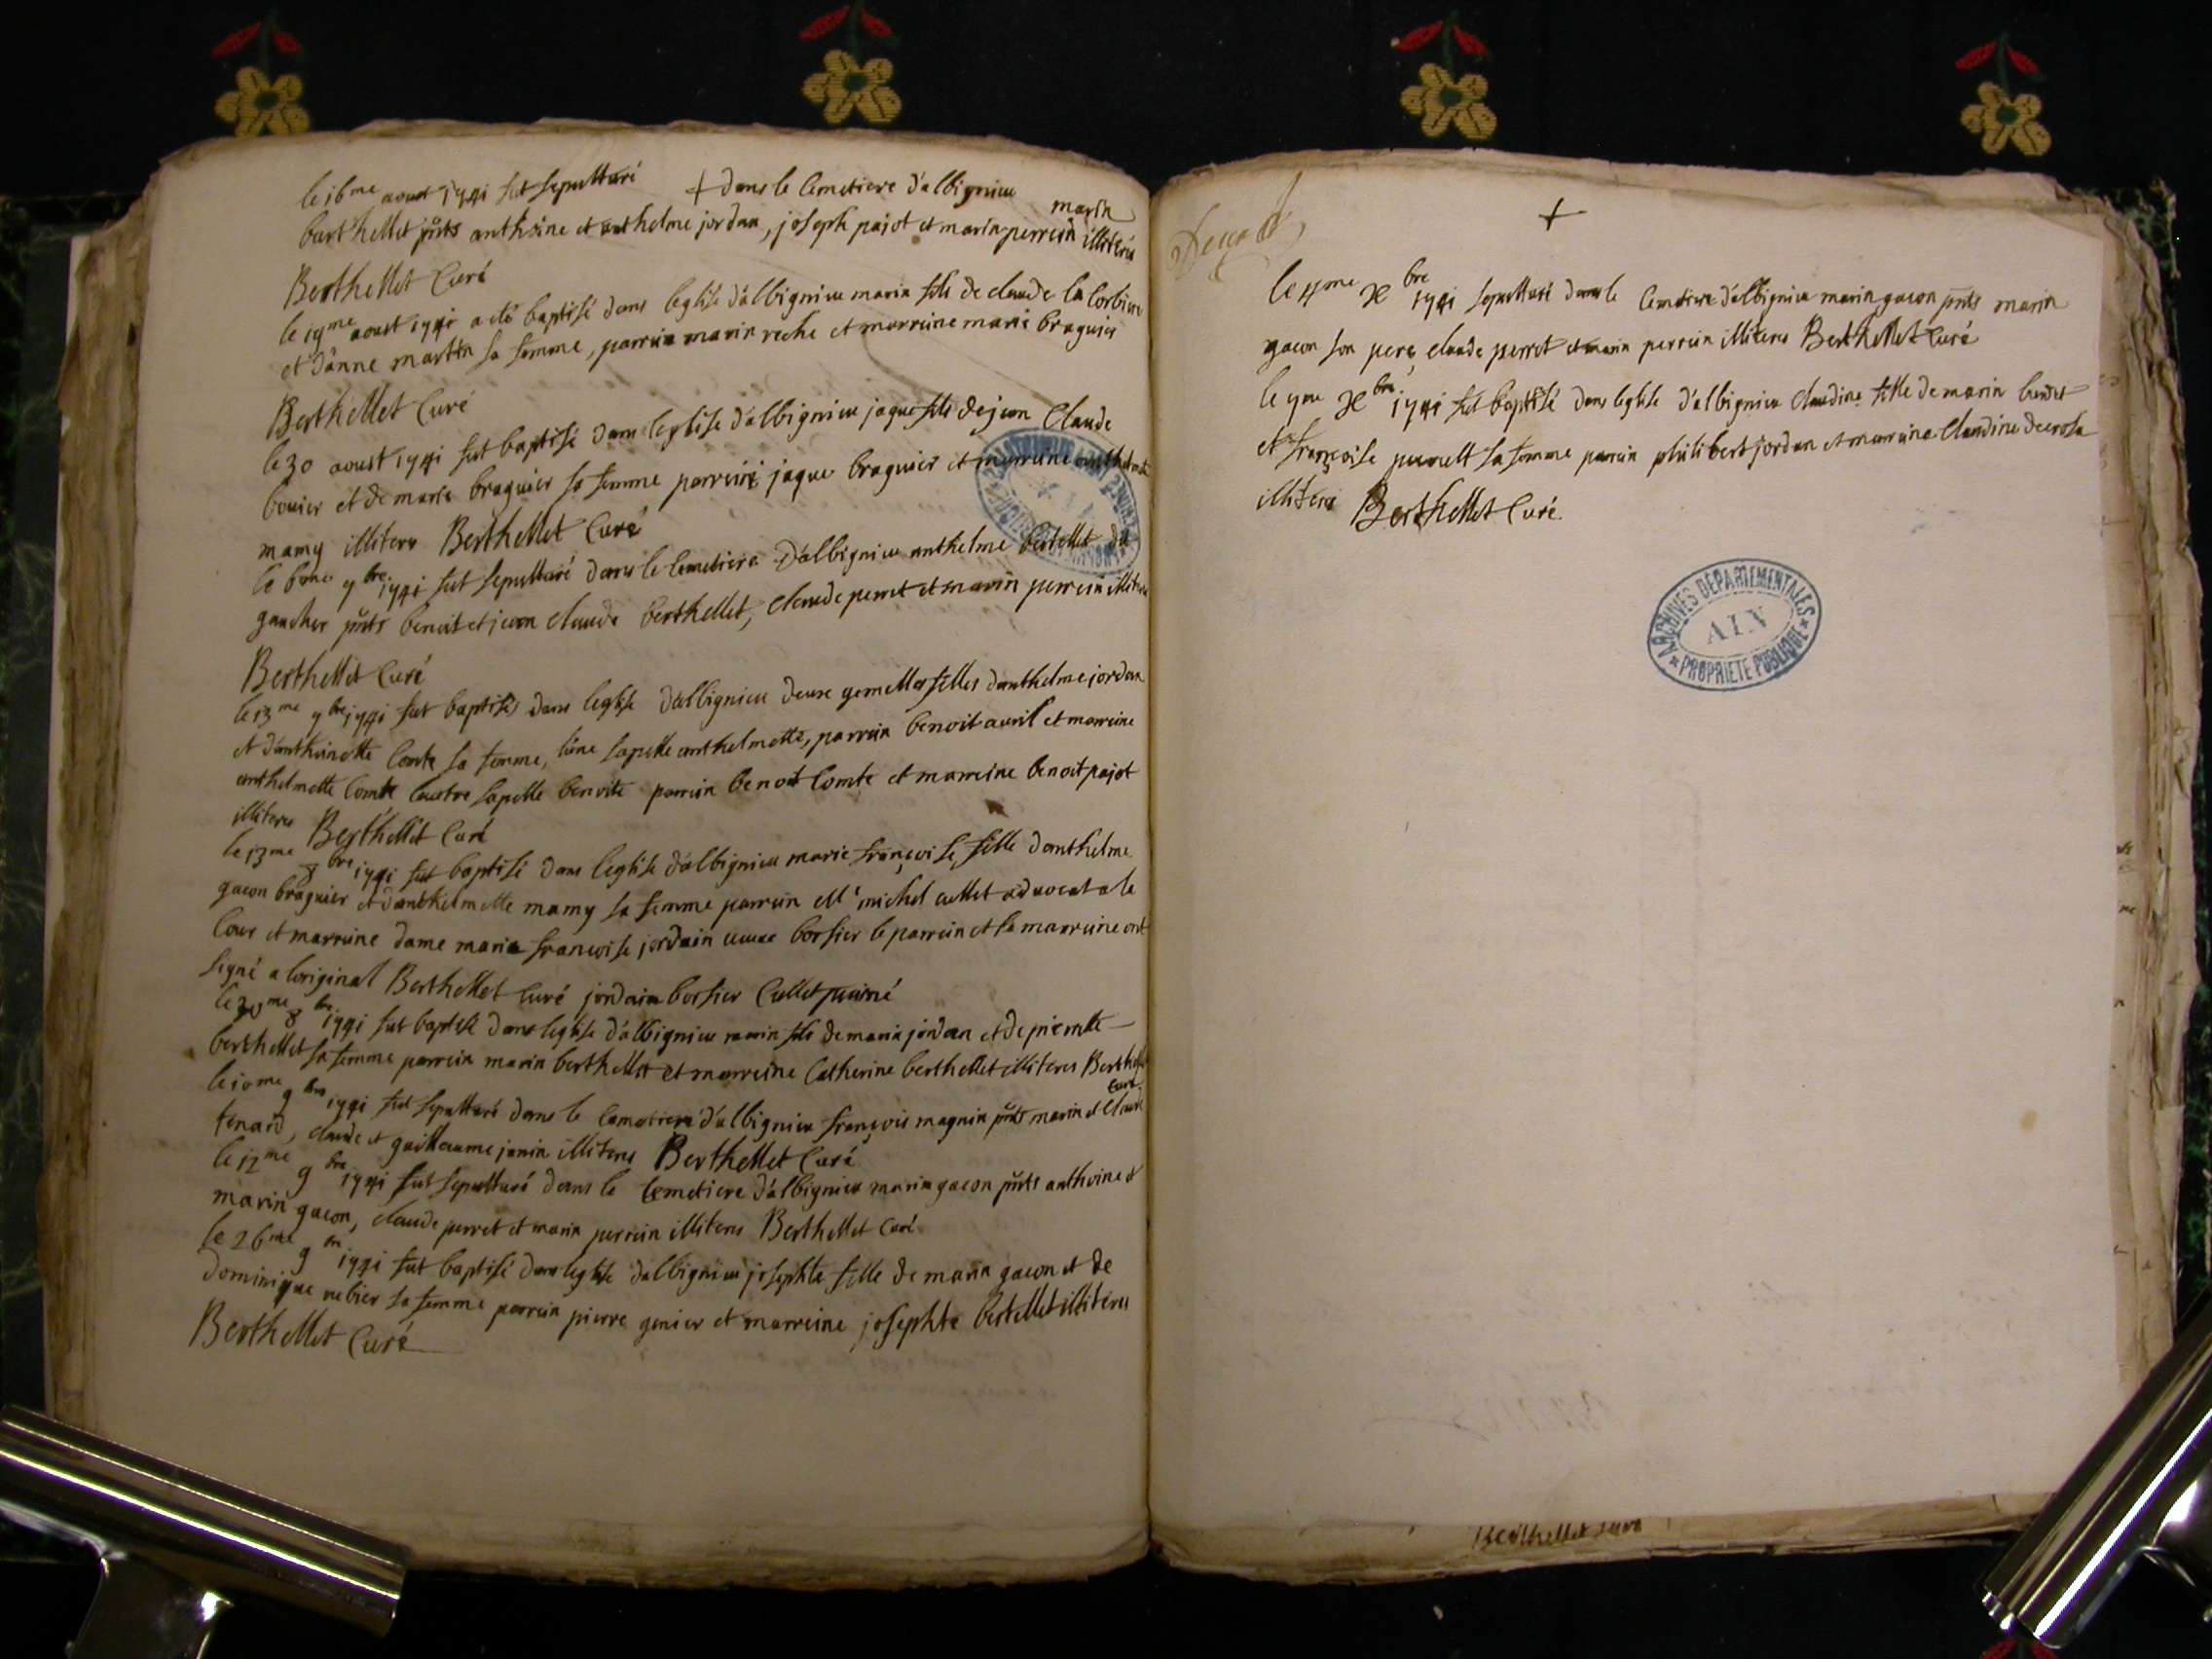 le 16me aoust 1741 fut sepulturé + dans le Cemetiere d'albignieu marin
berthellet pnts anthoine et anthelme jordan, joseph pajot et marin perrein illiterés
Berthellet Curé
le 19me aoust 1741 a eté baptisé dans leglise d'albignieu marin fils de claude la Corbiere
et d'anne martin sa femme, parrein marin reche et marreine marie braguier
Berthellet Curé
le 30 aoust 1741 fut baptisé dans leglise d'albignieu jaque fils de jean Claude
bouier et de marie braguier sa femme parrein jaque braguier et marreine anthelmette
mamy illiteres Berthellet Curé
le 6me 7bre 1741 fut sepulturé dans le Cemetiere d'albignieu anthelme bertellet dit
gaucher pnts benoit et jean claude berthellet, claude perret et marin perrein illiteres
Berthellet Curé
le 13me 7bre 1741 fut baptisés dans leglise d'albignieu deux gemelles filles d'anthelme jordan
et d'anthoinette Comte sa femme, l'une sapelle anthelmette, parrein benoit auril et marreine
anthelmette Comte l'autre sapelle benoite parrein benoit Comte et marreine benoit pajot
illiteres Berthellet Curé
le 13me 8bre 1741 fut baptisé dans leglise d'albignieu marie françoise fille d'anthelme
gacon braguier et d'anthelmette mamy sa femme parrein Mr michel cullet advocat a la
Cour et marreine dame marie françoise jordain borsier le parrein et la marreine ont
signé a loriginal Berthellet Curé jordain borsier Cullet puiné
le 8bre 1741 fut baptisé dans leglise d'albignieu marin fils de marin jordan et de pierrette
berthellet sa femme parrein marin berthellet et marreine Catherine berthellet illiteres Berthellet
Curé
le 10me 9bre 1741 fut sepulturé dans le Cemetiere d'albignieu françois magnin pnts marin et Claude
tenard, claude et guillaume janin illiteres Berthellet Curé
le 12me 9bre 1741 fut sepulturé dans le Cemetiere d'albignieu marin gacon pnts anthoine et
marin gacon, claude perret et marin perrein illiteres Berthellet Curé
le 26me 9bre 1741 fut baptisé dans leglise d'albignieu josephte fille de marin gacon et de
dominique sa femme parrein pierre genier et marreine josephte bertellet illiteres
Berthellet Curé
+
le 4me Xbre 1741 sepulturé dans le Cemetiere d'albignieu marin gacon pnts marin
gacon son pere, claude perret et marin perrein illiteres Berthellet Curé
le Xbre 1741 fut baptisé dans leglise d'albignieu Claudine fille de marin
et françoise sa femme parrein philibert jordan et marreine Claudine
illiteres Berthellet Curé
ARCHIVES DEPARTEMENTALES
AIN
* PROPRIETE PUBLIQUE *
Berthellet curé